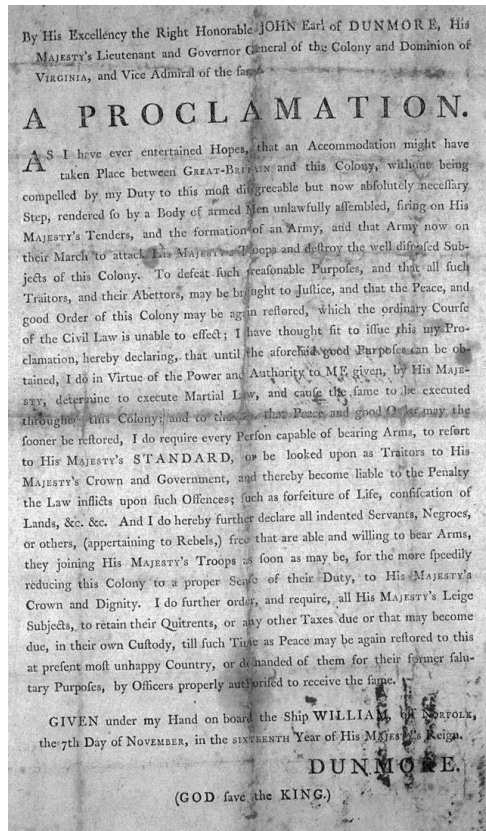 By His Excellency the Right Honorable JOHN Earl of DUNMORE, His
MAJESTY's Lieutenant and Governor General of the Colony and Dominion of
VIRGINIA, and Vice Admiral of the same.
A PROCLAMATION.
AS I have ever entertained Hopes, that an Accommodation might have
taken Place between GREAT-BRITAIN and this Colony, without being
compelled by my Duty to this moſt diſagreeable but now abſolutely neceſſary
Step, rendered ſo by a Body of armed Men unlawfully aſſembled, firing on His
MAJESTY's Tenders, and the formation of an Army, and that Army now on
their March to attack His MAJESTY's Troops and deſtroy the well diſpoſed Sub-
jects of this Colony. To defeat ſuch treaſonable Purpoſes, and that all ſuch
Traitors, and their Abettors, may be brought to Juſtice, and that the Peace, and
good Order of this Colony may be again reſtored, which the ordinary Courſe
of the Civil Law is unable to effect; I have thought fit to iſſue this my Pro-
clamation, hereby declaring, that until the aforeſaid good Purpoſes can be ob-
tained, I do in Virtue of the Power and Authority to ME given, by His MAJE-
STY, determine to execute Martial Law, and cauſe the ſame to be executed
throughout this Colony: and to the end that Peace and good Order may the
ſooner be reſtored, I do require every Perſon capable of bearing Arms, to reſort
to His MAJESTY's STANDARD, or be looked upon as Traitors to His
MAJESTY's Crown and Government, and thereby become liable to the Penalty
the Law inflicts upon ſuch Offences; ſuch as forfeiture of Life, confiſcation of
Lands, &c. &c. And I do hereby further declare all indented Servants, Negroes,
or others, (appertaining to Rebels,) free that are able and willing to bear Arms,
they joining His MAJESTY's Troops as ſoon as may be, for the more ſpeedily
reducing this Colony to a proper Senſe of their Duty, to His MAJESTY's
Crown and Dignity. I do further order, and require, all His MAJESTY's Leige
Subjects, to retain their Quitrents, or any other Taxes due or that may become
due, in their own Cuſtody, till ſuch Time as Peace may be again reſtored to this
at preſent moſt unhappy Country, or demanded of them for their former ſalu-
tary Purpoſes, by Officers properly authoriſed to receive the ſame.
GIVEN under my Hand on board the Ship WILLIAM, off NORFOLK,
the 7th Day of NOVEMBER, in the SIXTEENTH Year of His MAJESTY's Reign.
DUNMORE.
(GOD ſave the KING.)